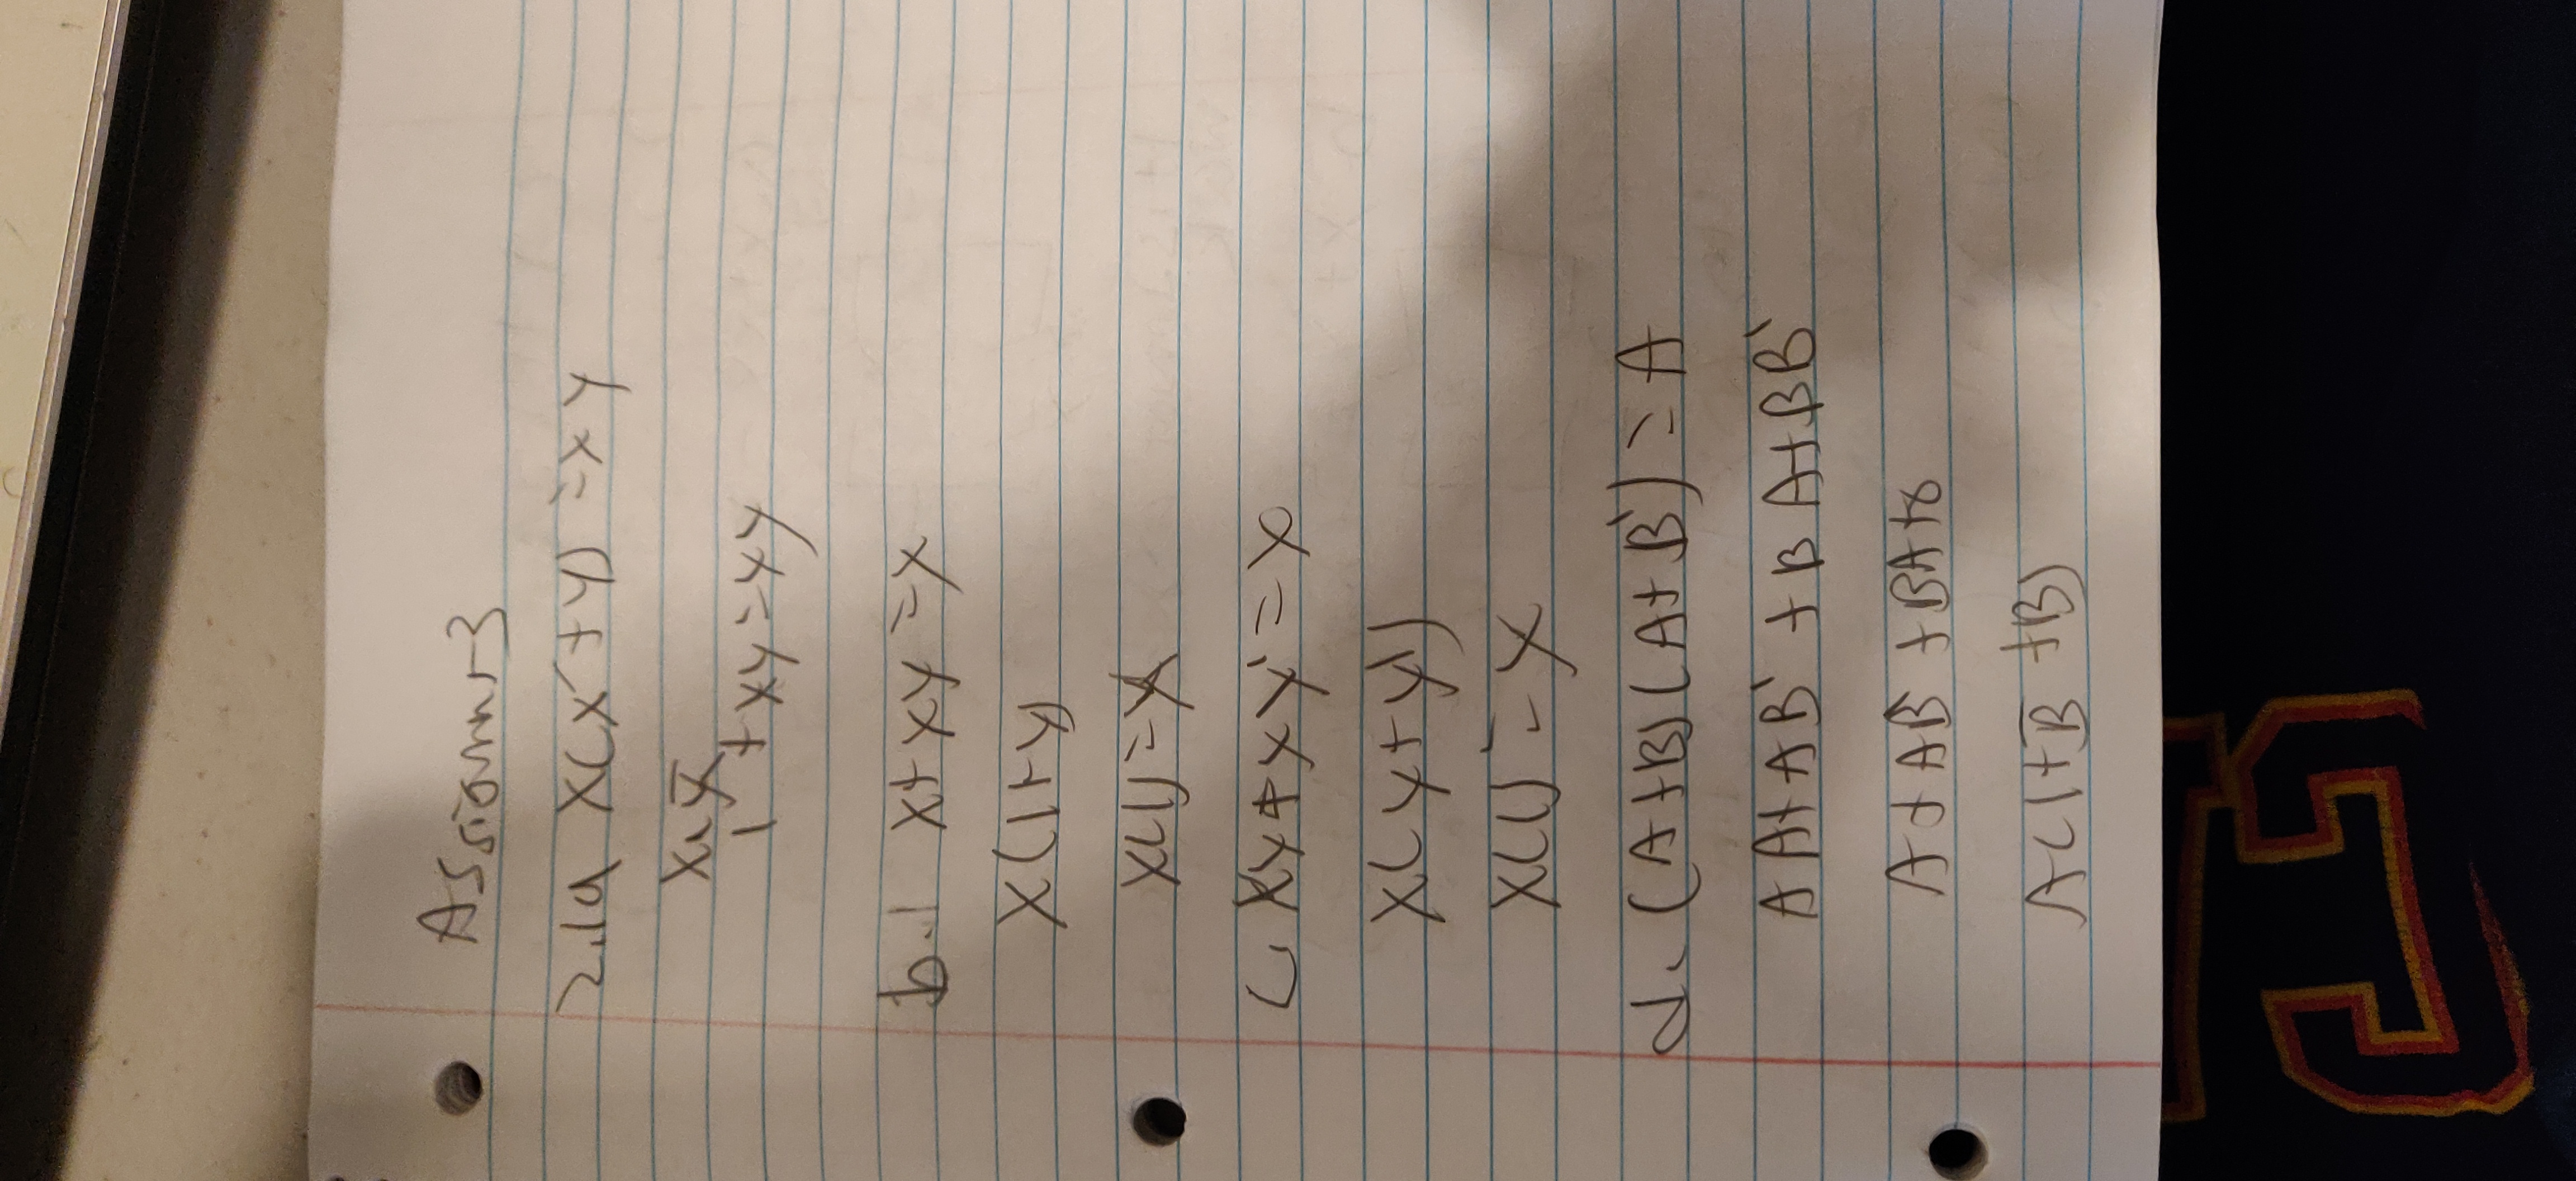 Assignment 3
2.1a X(X' + Y) = XY
X. X̅
1 + XY = XY
b.1 X + XY = X
X(1+Y)
X(1) = X
C. XY + XY' = X
X(Y + Y')
X(1) = X
d. (A+B)(A+B') = A
AA + AB' + BA + BB'
A + AB' + BA + 0
A(1 + B̅ + B)